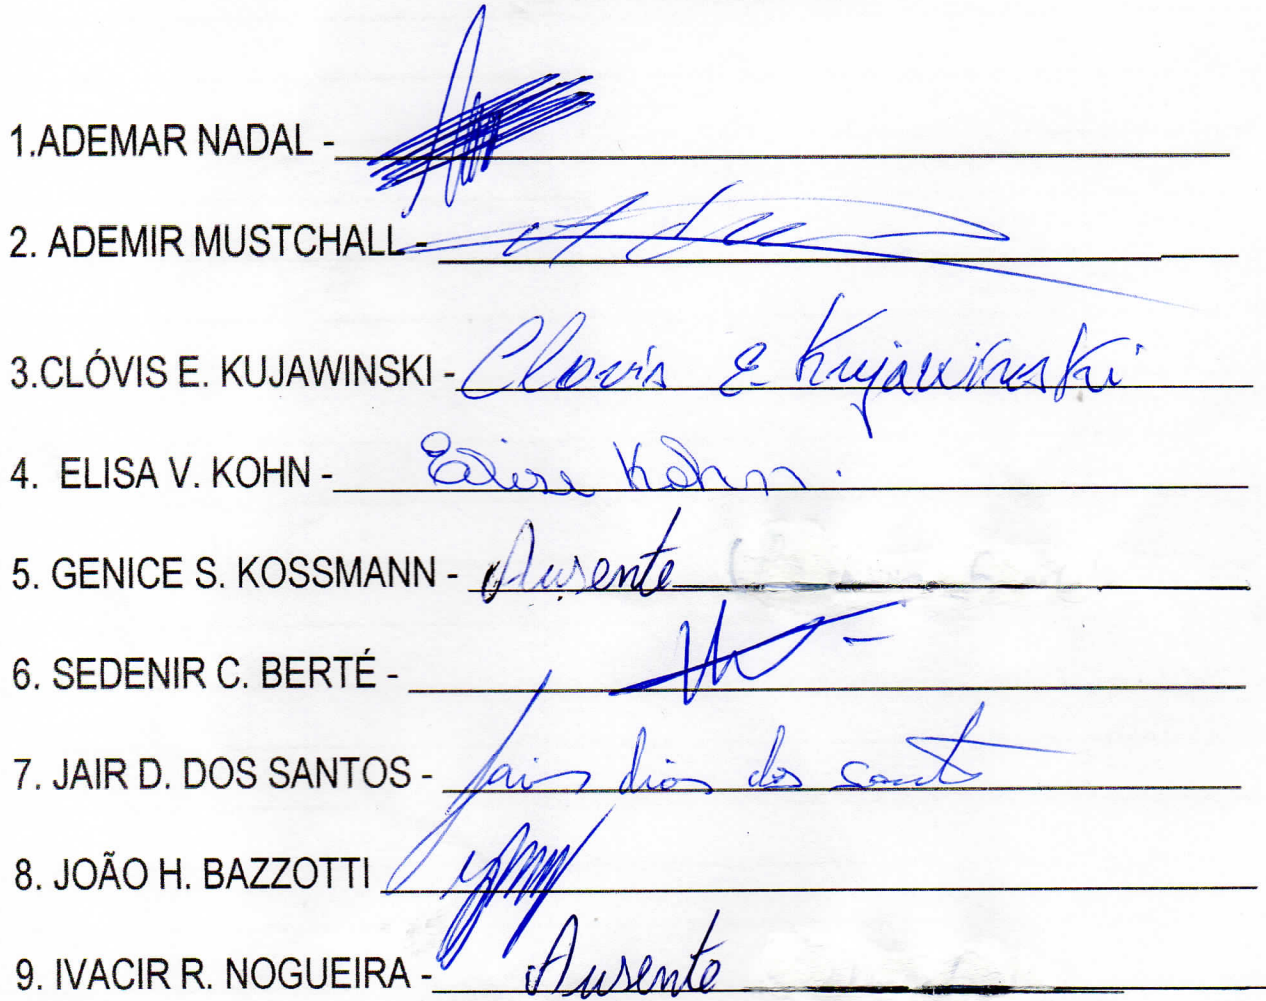 1.ADEMAR NADAL -
2. ADEMIR MUSTCHALL -
3.CLÓVIS E. KUJAWINSKI - Clovis E. Kujawinski
4. ELISA V. KOHN - Elisa Kohn.
5. GENICE S. KOSSMANN - Ausente
6. SEDENIR C. BERTÉ -
7. JAIR D. DOS SANTOS - Jair dias dos Santos
8. JOÃO H. BAZZOTTI
9. IVACIR R. NOGUEIRA - Ausente